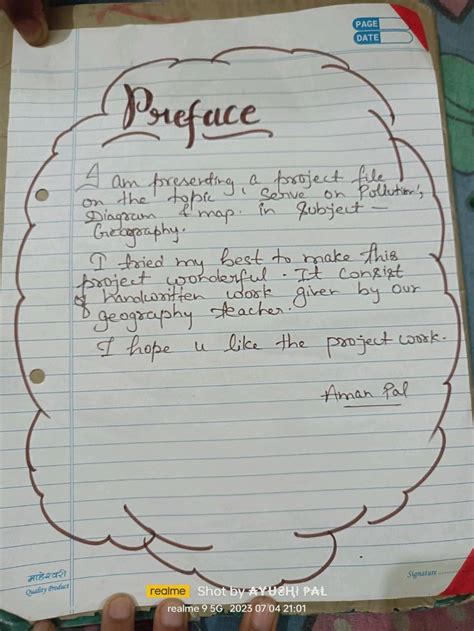 PAGE
DATE
Preface
I am presenting a project file
on the topic, serve on Pollution's,
Diagram & map. in Subject -
Geography.
I tried my best to make this
project wonderful. It consist
of handwritten work given by our
geography teacher.
I hope u like the project work.
Aman Pal
माहेश्वरी
Quality Product
Signature
realme Shot by AYUSHI PAL
realme 9 5G 2023 07 04 21:01